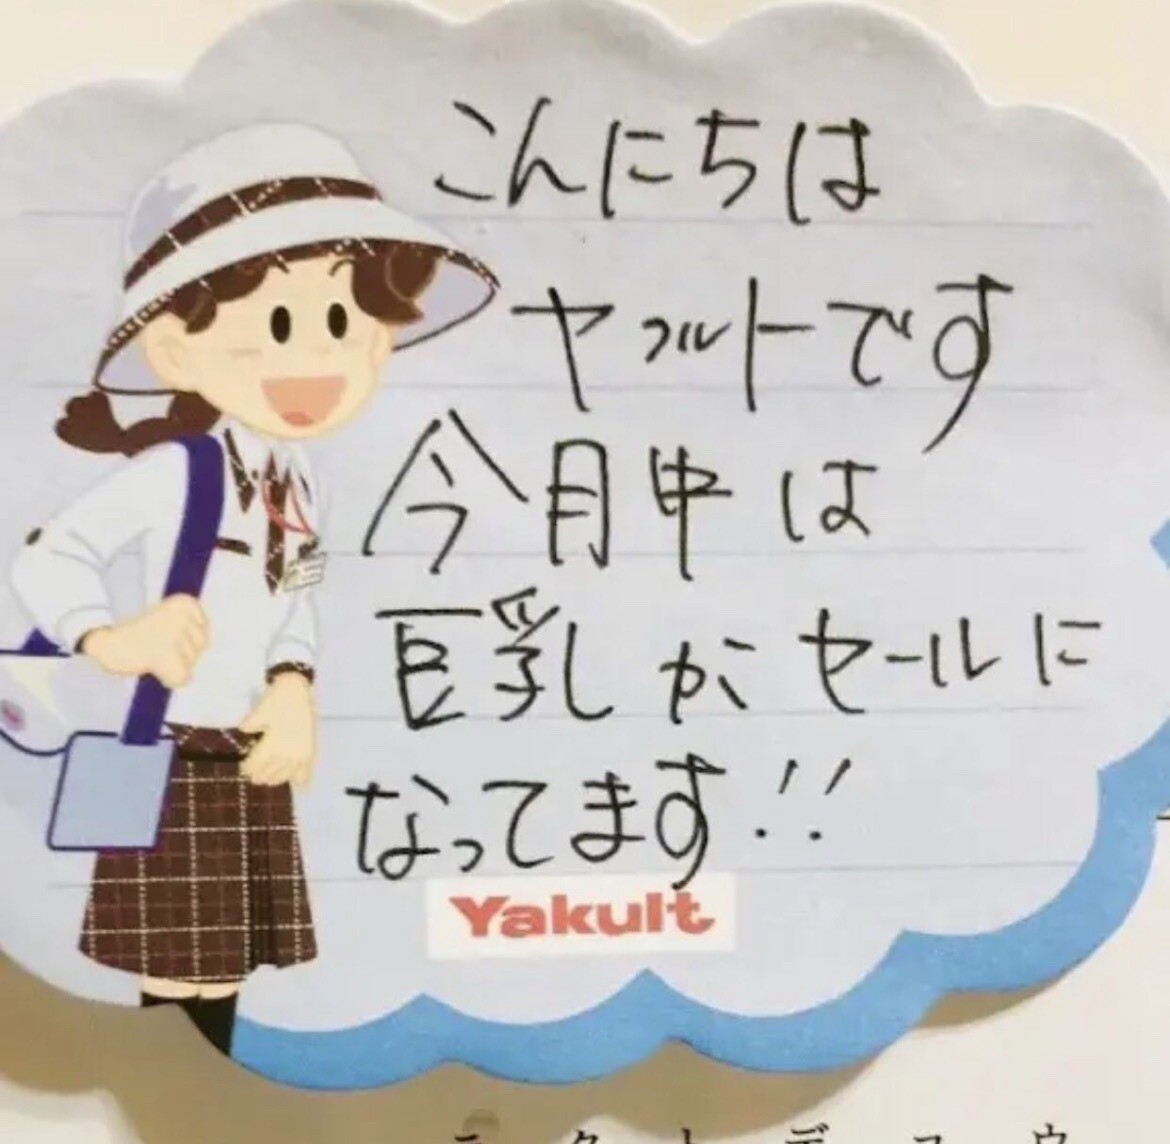 こんにちは
ヤクルトです
今月中は
巨乳がセールに
なってます!!
Yakult